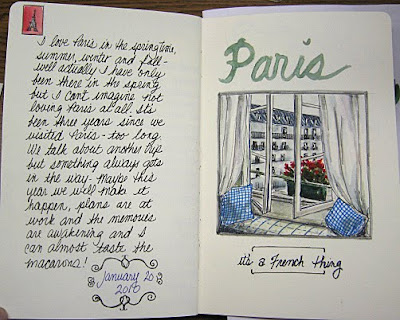 I love Paris in the springtime,
summer, winter and fall -
well actually I have only
been there in the spring
but I can't imagine not
loving Paris at all. It's
been three years since we
visited Paris - too long.
We talk about another trip
but something always gets
in the way - Maybe this
year we will make it
happen, plans are at
work and the memories
are awakening and I
can almost taste the
macarons!
January 20
2010
Paris
it's a French thing